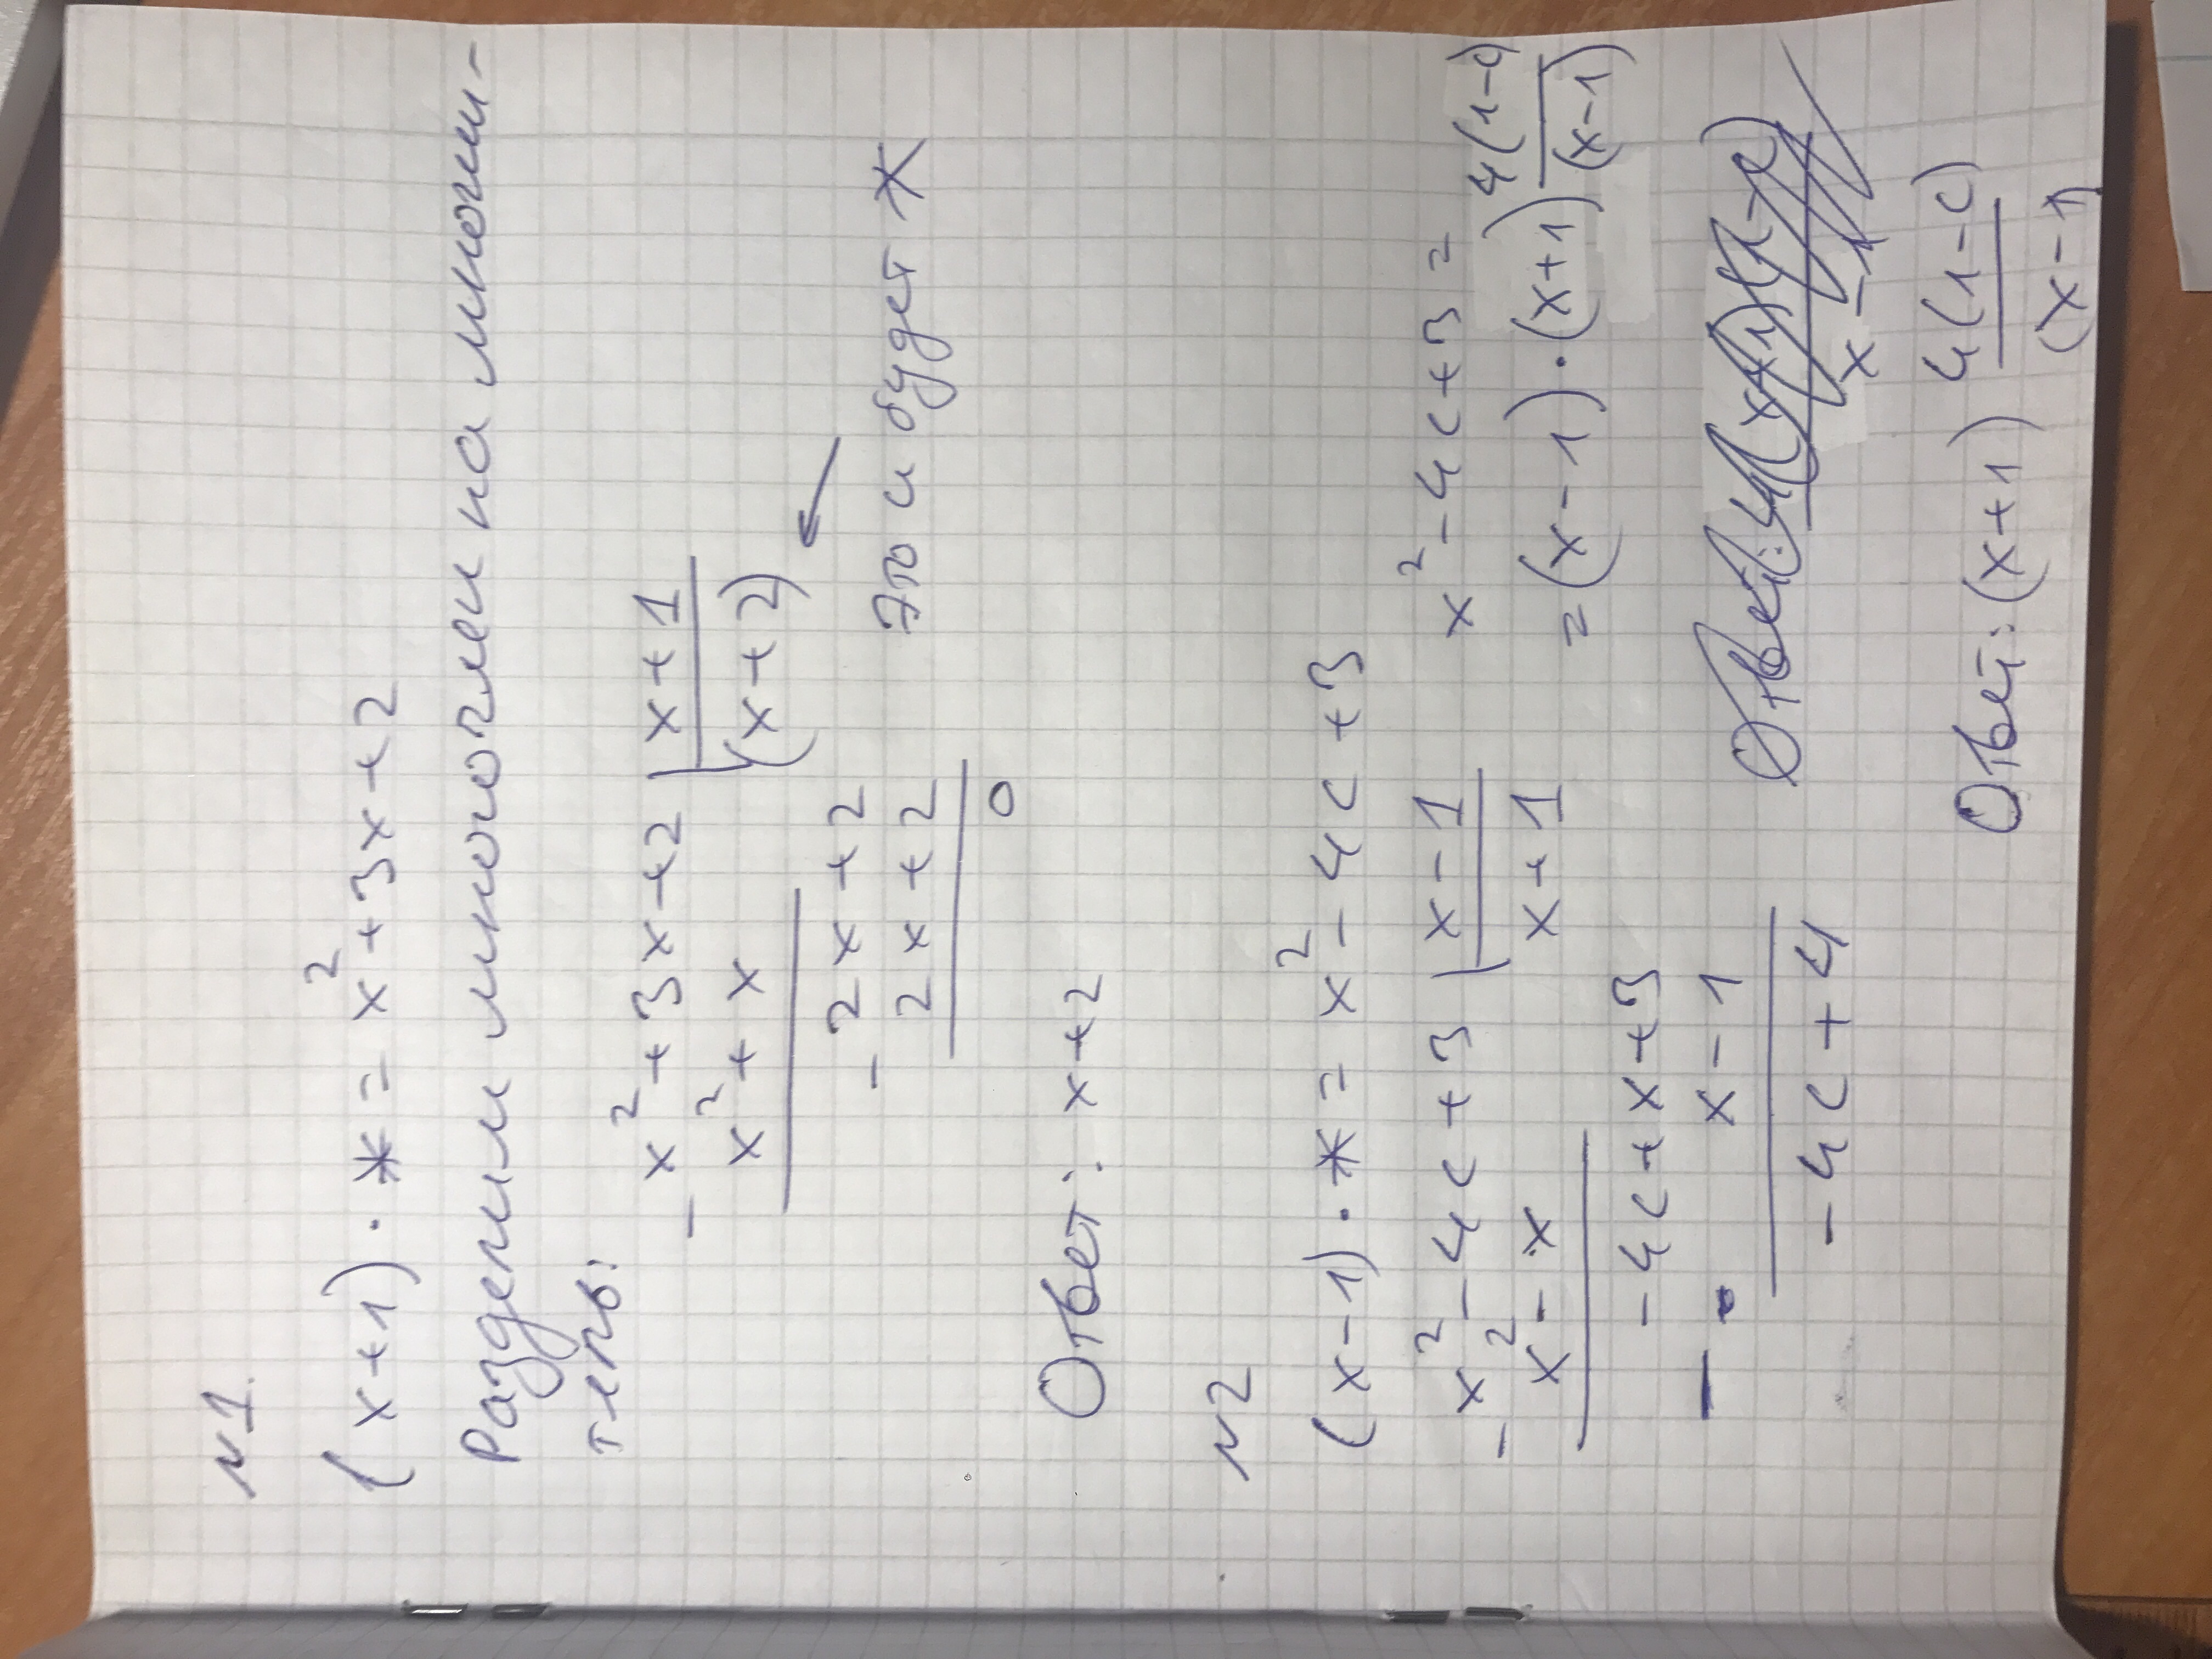 N1.
(x+1)·* = x²+3x+2
Разделим многочлен на множи-
тель:
- x²+3x+2 | x+1
x²+x (x+2)
- 2x+2
2x+2
это и будет *
0
Ответ: x+2
N2
(x-1)·* = x²-4c+3
- x²-4c+3 | x-1
x²-x x+1
-4c+x+3
- x-1
-4c+4
x²-4c+3=
=(x-1)·(x+1) 4(1-c)/(x-1)
Ответ: (x+1) 4(1-c)/(x-1)